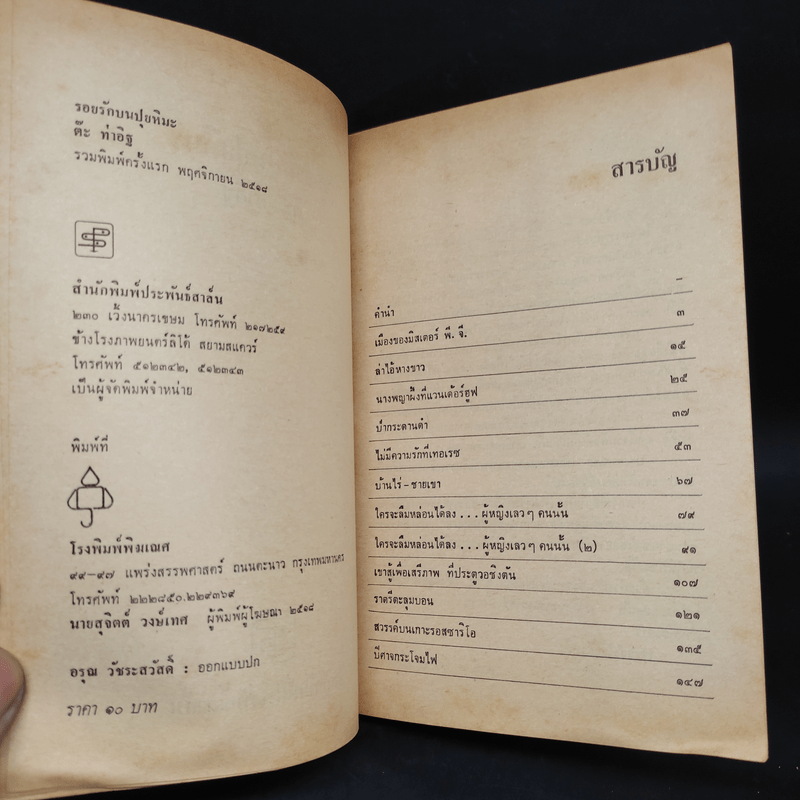 รอยรักบนปุยหิมะ
ต๊ะ ท่าอิฐ
รวมพิมพ์ครั้งแรก พฤศจิกายน ๒๕๑๘
สำนักพิมพ์ประพันธ์สาส์น
๒๓๐ เวิ้งนาครเขษม โทรศัพท์ ๒๑๗๒๕๙
ข้างโรงภาพยนตร์ลิโด้ สยามสแควร์
โทรศัพท์ ๕๑๒๓๔๒, ๕๑๒๓๔๓
เป็นผู้จัดพิมพ์จำหน่าย
พิมพ์ที่
โรงพิมพ์พิฆเณศ
๙๙–๙๗ แพร่งสรรพศาสตร์ ถนนตะนาว กรุงเทพมหานคร
โทรศัพท์ ๒๒๒๘๕๐,๒๒๙๓๖๙
นายสุจิตต์ วงษ์เทศ ผู้พิมพ์ผู้โฆษณา ๒๕๑๘
อรุณ วัชระสวัสดิ์ : ออกแบบปก
ราคา ๑๐ บาท
สารบัญ
คำนำ
เมืองของมิสเตอร์ พี. จี. ๓
ล่าไอ้หางขาว ๑๕
นางพญาผึ้งที่แวนเด้อร์ฮูฟ ๒๕
ป่ากระดานดำ ๓๗
ไม่มีความรักที่เทอเรซ ๕๓
บ้านไร่–ชายเขา ๖๗
ใครจะลืมหล่อนได้ลง . . . ผู้หญิงเลว ๆ คนนั้น ๗๙
ใครจะลืมหล่อนได้ลง . . . ผู้หญิงเลว ๆ คนนั้น (๒) ๙๑
เขาสู้เพื่อเสรีภาพ ที่ประตูวอชิงตัน ๑๐๗
ราตรีตะลุมบอน ๑๒๑
สวรรค์บนเกาะรอสซาริโอ ๑๓๕
ปีศาจกระโจมไฟ ๑๔๗